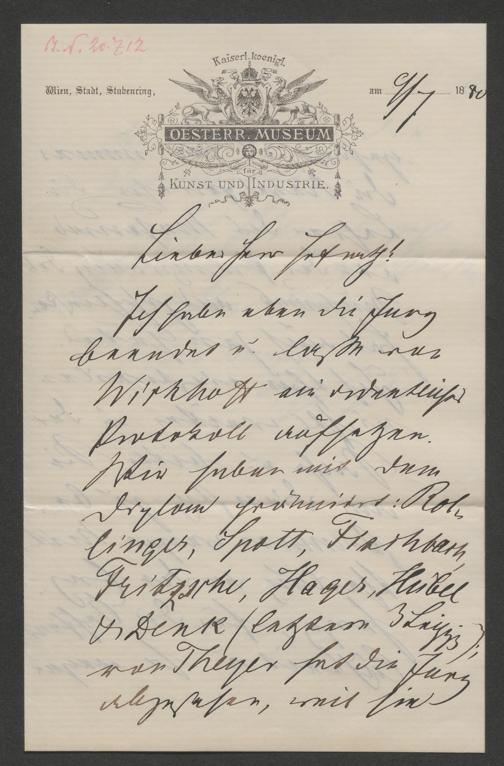 Kaiserl. koenigl.
Wien, Stadt, Stubenring,
am 9/7 1880
OESTERR. MUSEUM
für
KUNST UND INDUSTRIE.
Lieber Herr Hofrath!
Ich habe eben die Jury
beendet u. lasse von
Wickhoff ein ordentliches
Protokoll aufsetzen.
Wir haben mit dem
Diplom prämiirt: Rol-
linger, Spott, Fischbach,
Fritzsche, Hager, Heibel
& Denk (letztern 3 Leipzig);
von Theyer hat die Jury
abgesehen, weil sie